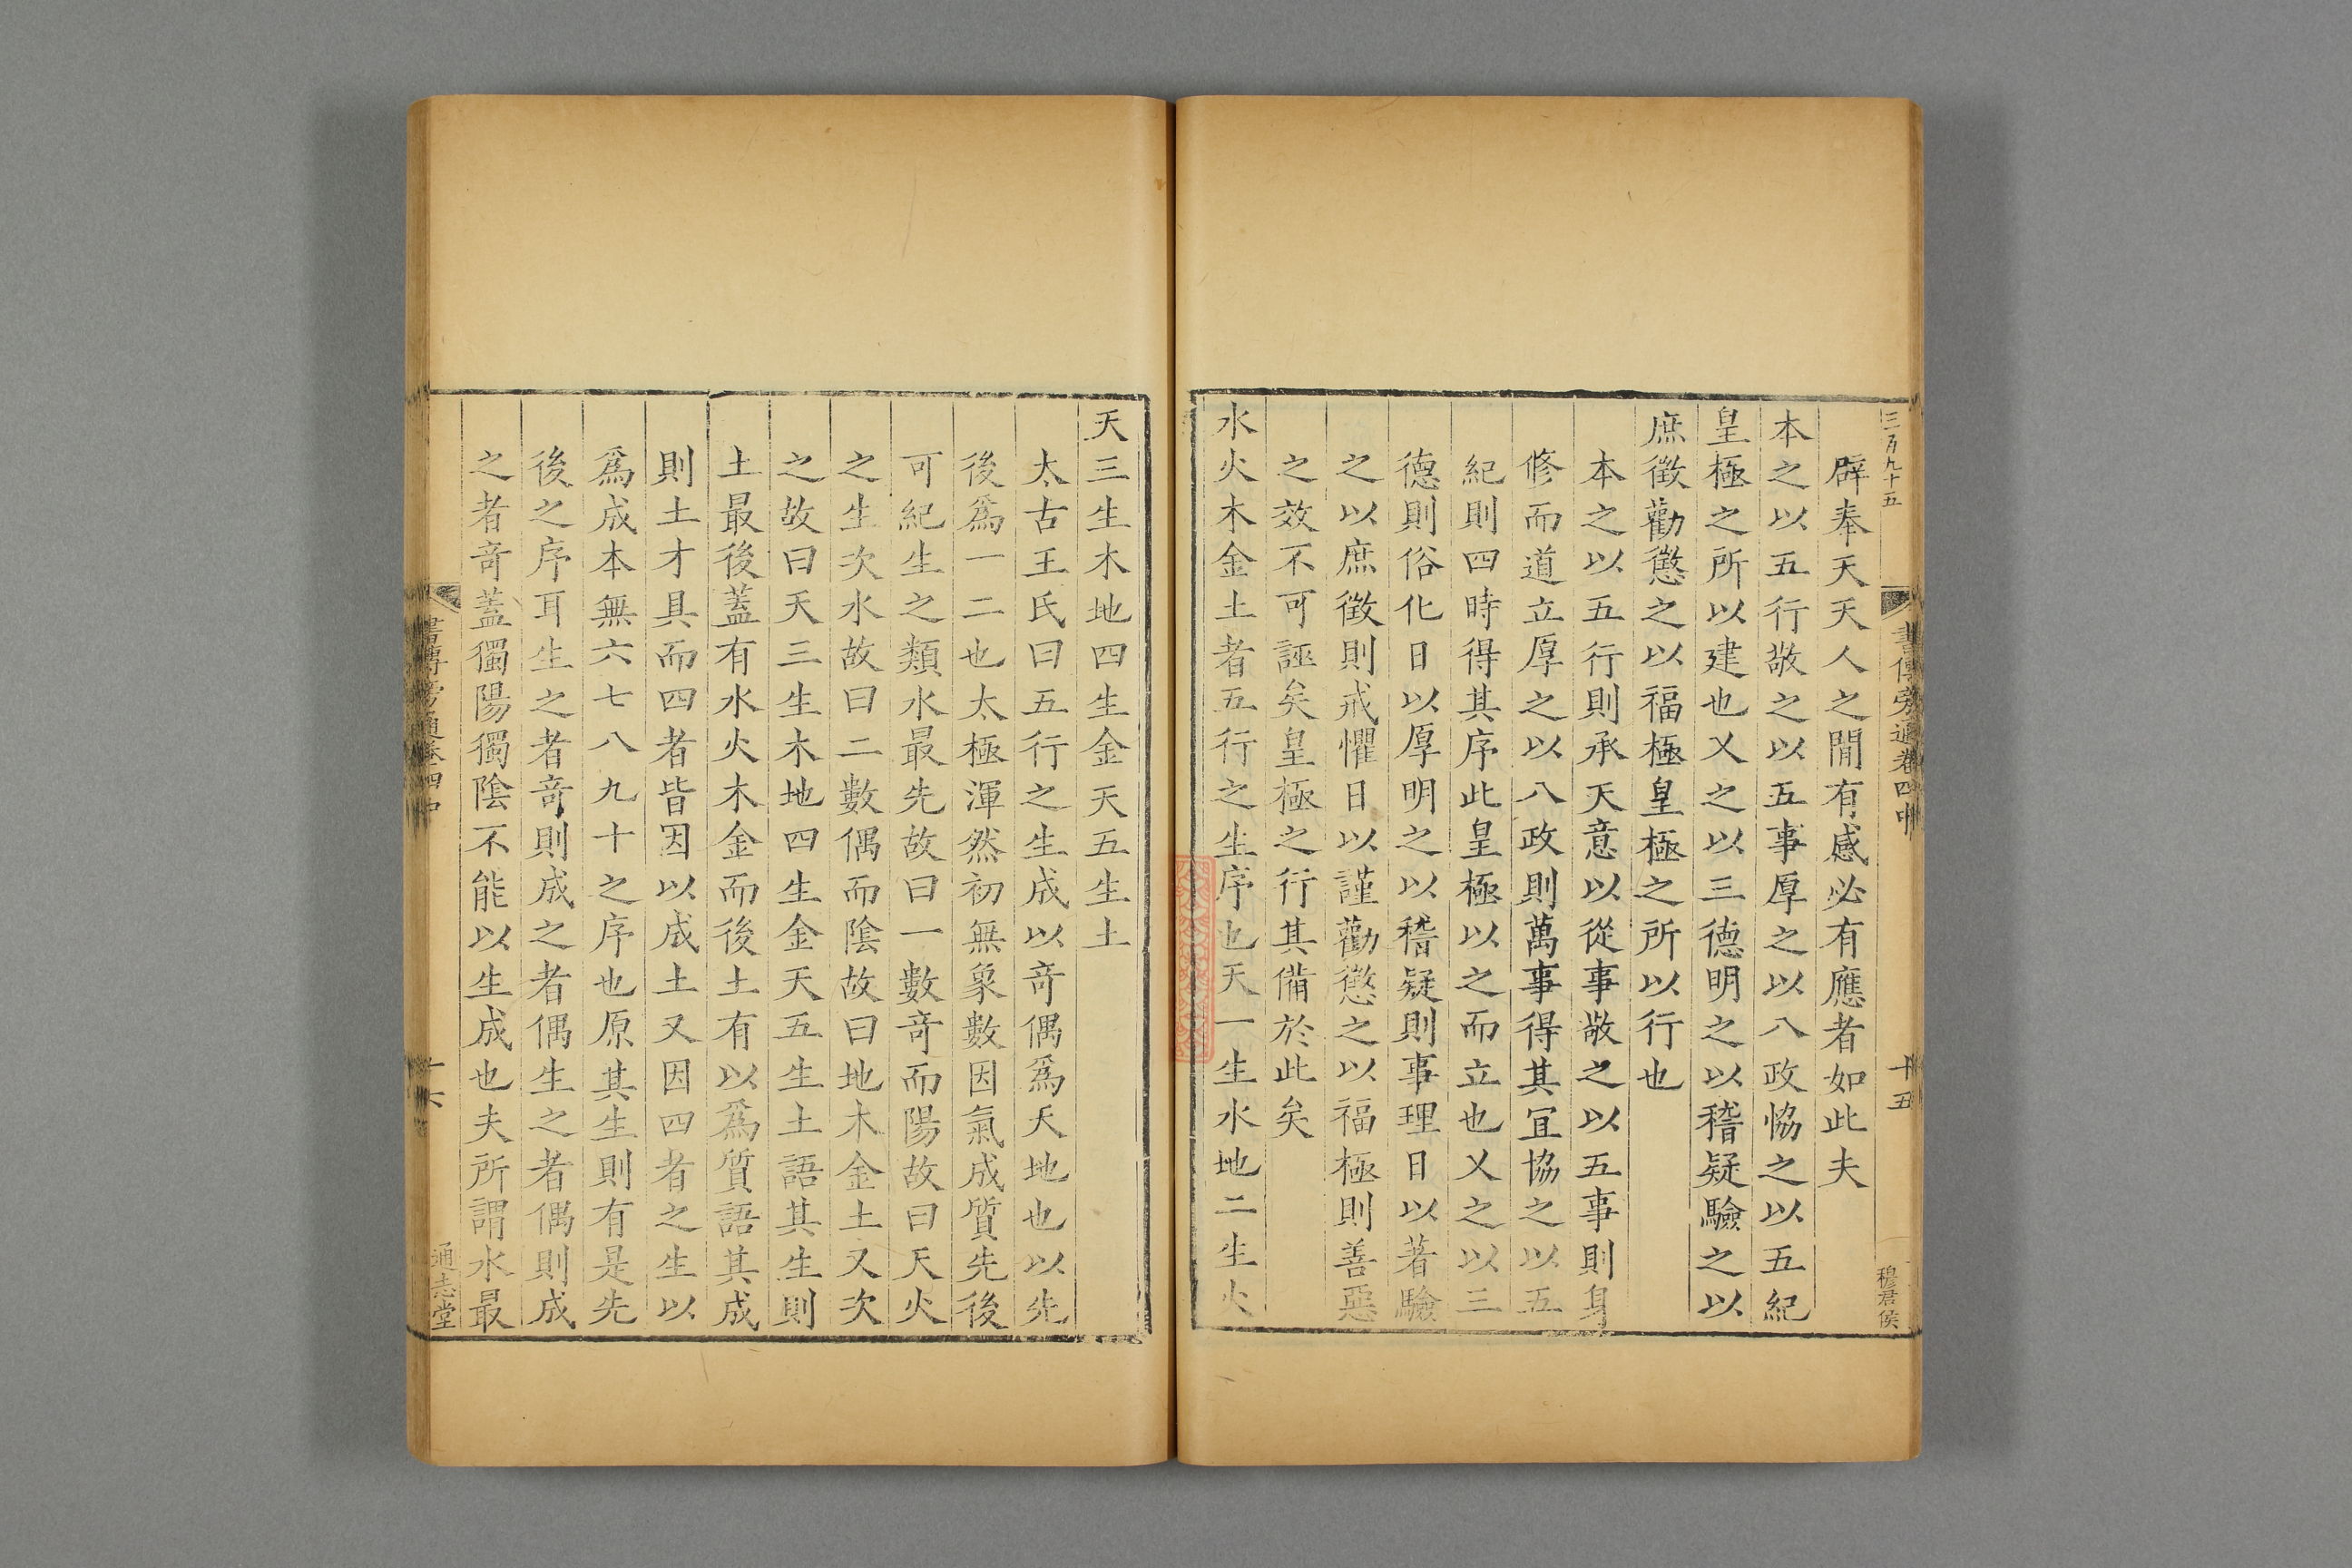 三百九十五
書傳旁通卷四中
十五
穆君侯
辟奉天天人之閒有感必有應者如此夫
本之以五行敬之以五事厚之以八政恊之以五紀
皇極之所以建也乂之以三德明之以稽疑驗之以
庶徵勸懲之以福極皇極之所以行也
本之以五行則承天意以從事敬之以五事則身
修而道立厚之以八政則萬事得其冝協之以五
紀則四時得其序此皇極以之而立也乂之以三
德則俗化日以厚明之以稽疑則事理日以著驗
之以庶徵則戒懼日以謹勸懲之以福極則善惡
之效不可誣矣皇極之行其備於此矣
水火木金土者五行之生序也天一生水地二生火
天三生木地四生金天五生土
太古王氏曰五行之生成以竒偶爲天地也以先
後爲一二也太極渾然初無象數因氣成質先後
可紀生之類水最先故曰一數竒而陽故曰天火
之生次水故曰二數偶而陰故曰地木金土又次
之故曰天三生木地四生金天五生土語其生則
土最後蓋有水火木金而後土有以爲質語其成
則土才具而四者皆因以成土又因四者之生以
爲成本無六七八九十之序也原其生則有是先
後之序耳生之者竒則成之者偶生之者偶則成
之者竒蓋獨陽獨陰不能以生成也夫所謂水最
書傳旁通卷四中
十六
通志堂